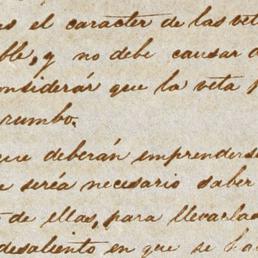 as el caracter de las vet
ble, y no debe causar d
considerár que la veta p
rumbo.
que deberán emprenderse
e seréa necesario saber
de ellas, para llevarlas
desaliento en que se ha